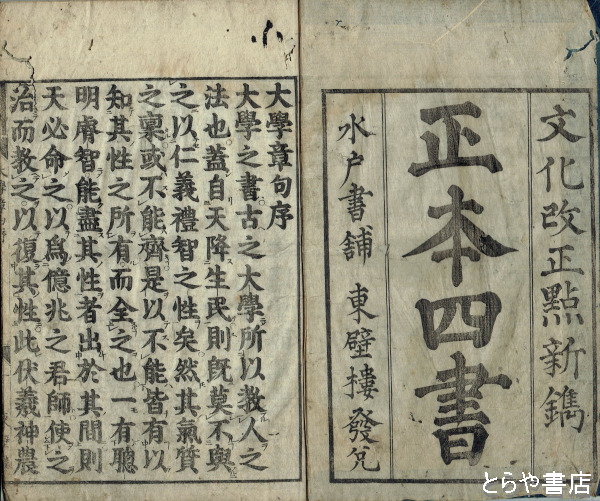 文化改正點新鐫
正本四書
水戸書舗 東壁樓發兌
大學章句序
大學之書古之大學所以教人之
法也蓋自天降生民則既莫不與
之以仁義禮智之性矣然其氣質
之稟或不能齊是以不能皆有以
知其性之所有而全之也一有聰
明睿智能盡其性者出於其間則
天必命之以爲億兆之君師使之
治而教之以復其性此伏羲神農
とらや書店